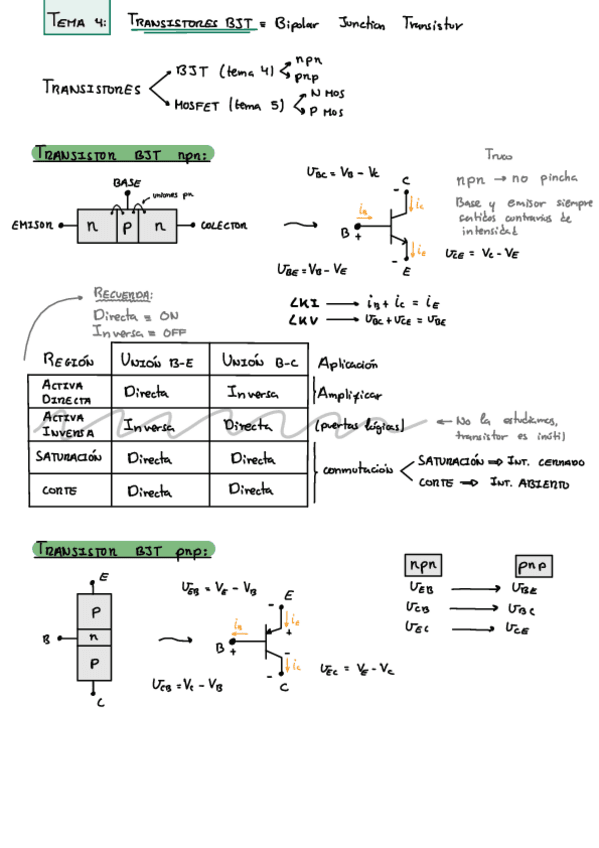 TEMA 4: TRANSISTORES BJT = Bipolar Junction Transistor
TRANSISTORES
BJT (tema 4)
npn
pnp
MOSFET (tema 5)
N MOS
P MOS
TRANSISTOR BJT npn:
BASE
uniones pn
EMISOR
n
p
n
COLECTOR
UBC = VB - VC
C
-
iC
iB
B
+
iE
-
E
UBE = VB - VE
UCE = VC - VE
Truco
npn → no pincha
Base y emisor siempre
sentidos contrarios de
intensidad
LKI → iB + iC = iE
LKV → UBC + UCE = UBE
RECUERDA:
Directa = ON
Inversa = OFF
REGIÓN UNIÓN B-E UNIÓN B-C Aplicación
ACTIVA DIRECTA Directa Inversa Amplificar
ACTIVA INVERSA Inversa Directa (puertas lógicas) ← No la estudiamos,
transistor es inútil
SATURACIÓN Directa Directa
CORTE Directa Directa
conmutación
SATURACIÓN ⇒ INT. CERRADO
CORTE ⇒ INT. ABIERTO
TRANSISTOR BJT pnp:
E
P
n
P
B
C
UEB = VE - VB
E
-
iE
+
iB
B
+
-
iC
-
C
UCB = VC - VB
UEC = VE - VC
npn pnp
UEB → UBE
UCB → UBC
UEC → UCE